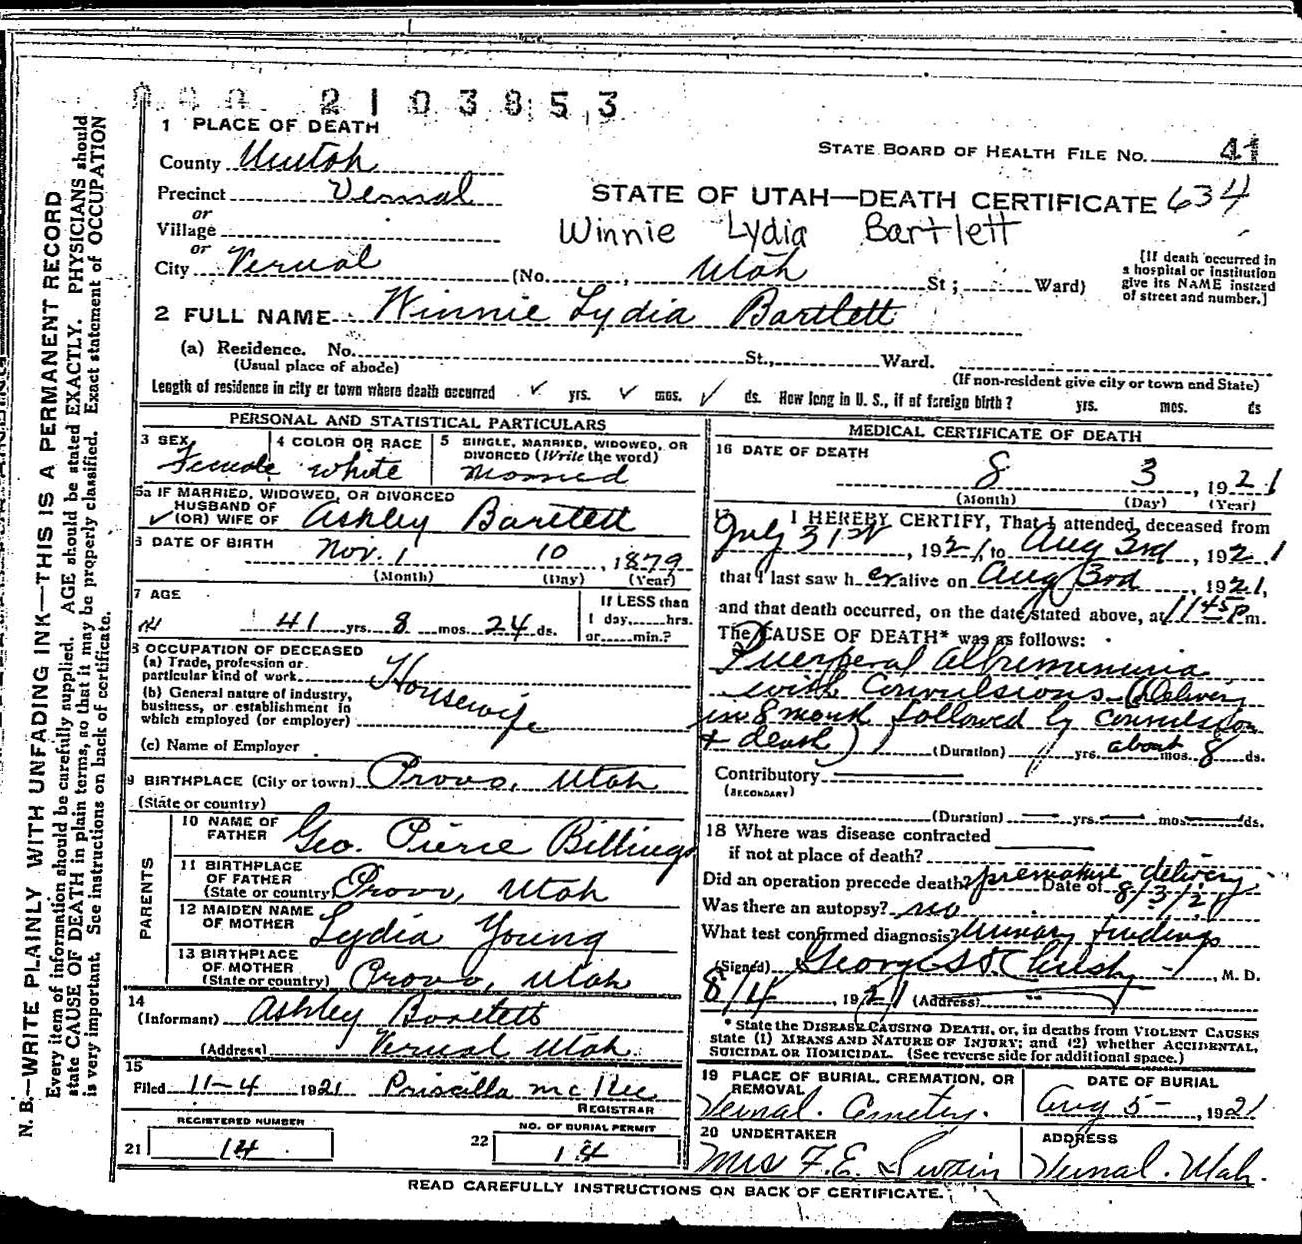 2103853
1 PLACE OF DEATH
County Uintah
STATE BOARD OF HEALTH FILE NO. 41
Precinct Vernal
STATE OF UTAH—DEATH CERTIFICATE 634
or
Village
Winnie Lydia Bartlett
or
City Vernal (No. , Utah St ; Ward)
[If death occurred in
a hospital or institution
give its NAME instead
of street and number.]
2 FULL NAME Winnie Lydia Bartlett
(a) Residence. No. St., Ward.
(Usual place of abode)
(If non-resident give city or town and State)
Length of residence in city or town where death occurred ✓ yrs. ✓ mos. ✓ ds. How long in U. S., if of foreign birth? yrs. mos. ds
PERSONAL AND STATISTICAL PARTICULARS
3 SEX
Female
4 COLOR OR RACE
white
5 SINGLE, MARRIED, WIDOWED, OR
DIVORCED (Write the word)
Married
5a IF MARRIED, WIDOWED, OR DIVORCED
HUSBAND OF
✓ (OR) WIFE OF Ashley Bartlett
6 DATE OF BIRTH
Nov. 10, 1879
(Month) (Day) (Year)
7 AGE
41 yrs. 8 mos. 24 ds.
If LESS than
1 day, hrs.
or min.?
8 OCCUPATION OF DECEASED
(a) Trade, profession or
particular kind of work Housewife
(b) General nature of industry,
business, or establishment in
which employed (or employer)
(c) Name of Employer
9 BIRTHPLACE (City or town) Provo, Utah
(State or country)
PARENTS
10 NAME OF
FATHER Geo. Pierce Billings
11 BIRTHPLACE
OF FATHER
(State or country) Provo, Utah
12 MAIDEN NAME
OF MOTHER Lydia Young
13 BIRTHPLACE
OF MOTHER
(State or country) Provo, Utah
14
(Informant) Ashley Bartlett
(Address) Vernal Utah.
15
Filed 11-4 1921 Priscilla McKee
REGISTRAR
REGISTERED NUMBER
21 14
NO. OF BURIAL PERMIT
22 14
MEDICAL CERTIFICATE OF DEATH
16 DATE OF DEATH
8 3, 1921
(Month) (Day) (Year)
17 I HEREBY CERTIFY, That I attended, deceased from
July 31st, 1921 to Aug 3rd, 1921
that I last saw her alive on Aug 3rd 1921,
and that death occurred, on the date stated above, at 11 45 P m.
The CAUSE OF DEATH* was as follows:
Puerperal Albuminuria
with Convulsions (Delivery
in 8 month followed by convulsion
+ death) (Duration) yrs. about mos. 8 ds.
Contributory
(SECONDARY)
(Duration) yrs. mos. ds.
18 Where was disease contracted
if not at place of death?
Did an operation precede death? premature delivery Date of 8/3/21
Was there an autopsy? no
What test confirmed diagnosis? Urinary findings
(Signed) George , M. D.
8/4, 1921 (Address) "
* State the DISEASE CAUSING DEATH, or, in deaths from VIOLENT CAUSES
state (1) MEANS AND NATURE OF INJURY; and (2) whether ACCIDENTAL,
SUICIDAL OR HOMICIDAL. (See reverse side for additional space.)
19 PLACE OF BURIAL, CREMATION, OR
REMOVAL
Vernal. Cemetery.
DATE OF BURIAL
Aug 5-, 1921
20 UNDERTAKER
Mrs F. E. Swain
ADDRESS
Vernal. Utah.
READ CAREFULLY INSTRUCTIONS ON BACK OF CERTIFICATE.
N. B.—WRITE PLAINLY WITH UNFADING INK—THIS IS A PERMANENT RECORD
Every item of information should be carefully supplied. AGE should be stated EXACTLY. PHYSICIANS should
state CAUSE OF DEATH in plain terms, so that it may be properly classified. Exact statement of OCCUPATION
is very important. See instructions on back of certificate.